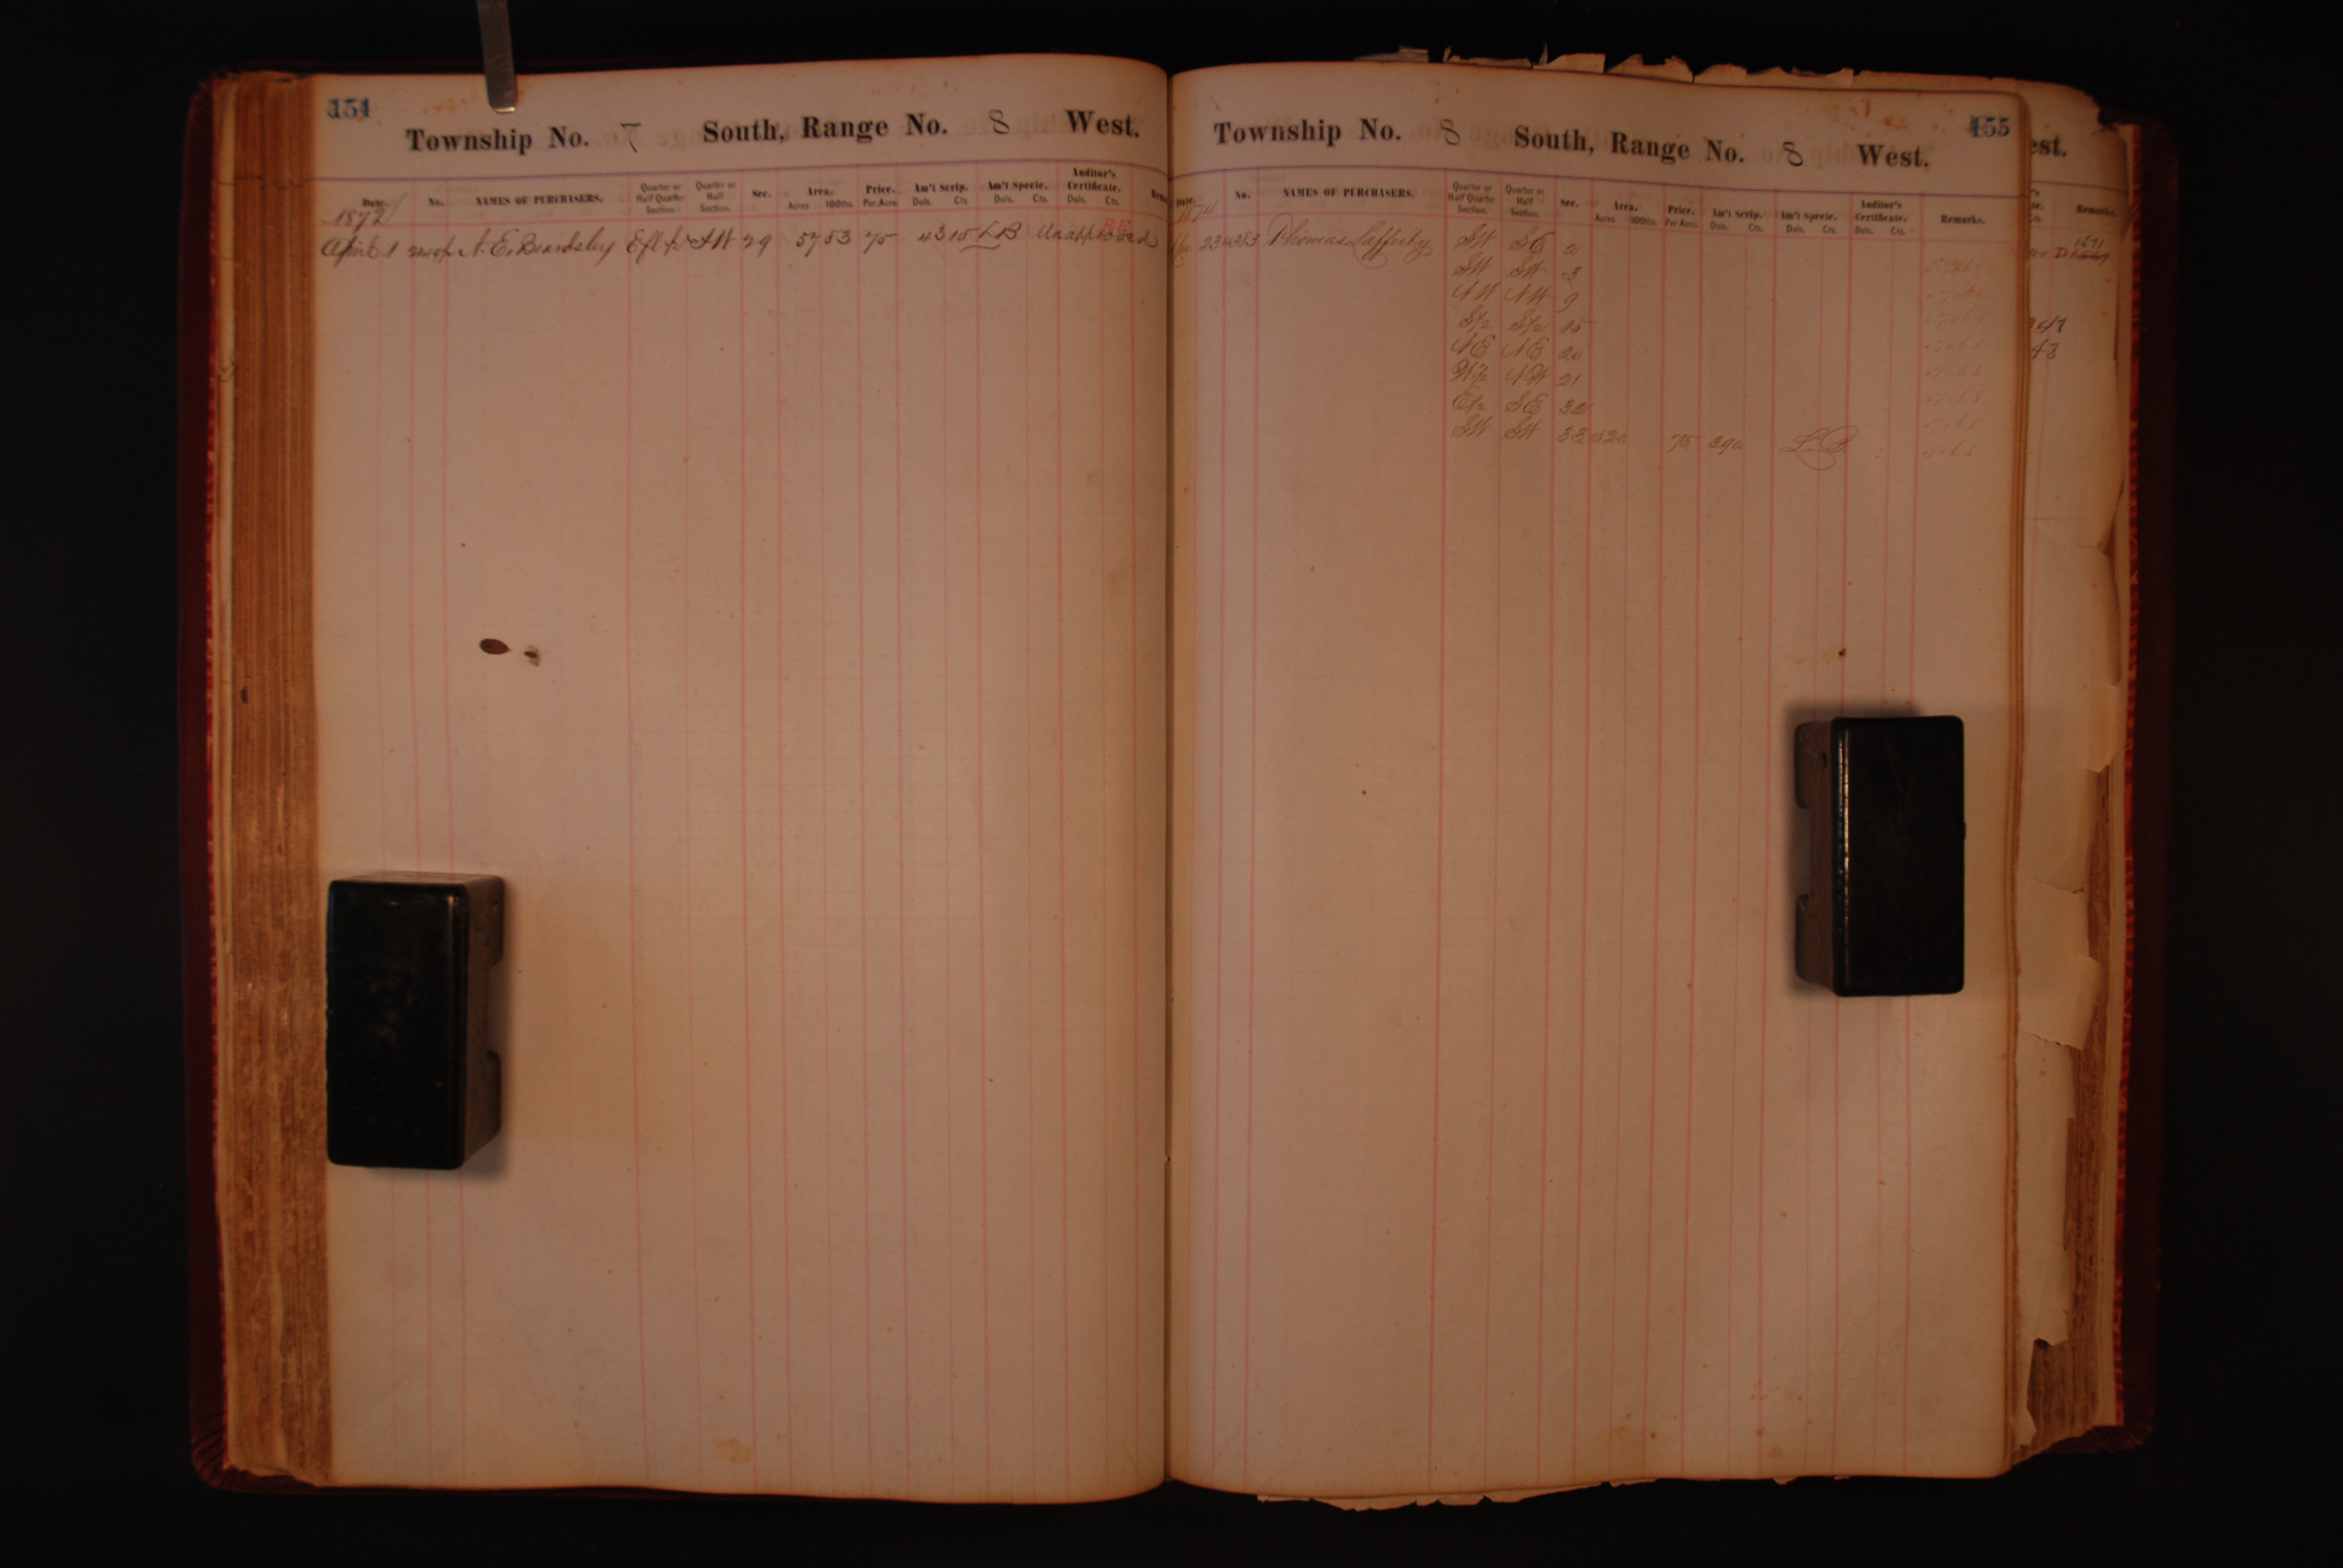 154
Township No. 7 South, Range No. 8 West.
Date. No. NAMES OF PURCHASERS. Quarter or Half Quarter Section. Quarter or Half Section. Sec. Area. Acres 100ths. Price. Per Acre. Am't Scrip. Dols. Cts. Am't Specie. Dols. Cts. Auditor's Certificate. Dols. Cts.
1872
April 1 A. E. Beardsley SW 29 57 53 75 43 15 LB Unapproved
155
Township No. 8 South, Range No. 8 West.
Date. No. NAMES OF PURCHASERS. Quarter or Half Quarter Section. Quarter or Half Section. Sec. Area. Acres 100ths. Price. Per Acre. Am't Scrip. Dols. Cts. Am't Specie. Dols. Cts. Auditor's Certificate. Dols. Cts. Remarks.
1874
23 Thomas Lafferty SW SE 2
SW SW 3
NW NW 9
S1/2 S1/2 15
NE NE 20
W1/2 NW 21
E1/2 SE 32
SW SW 33 520 75 390 L.B.
est.
Remarks.
1571
48